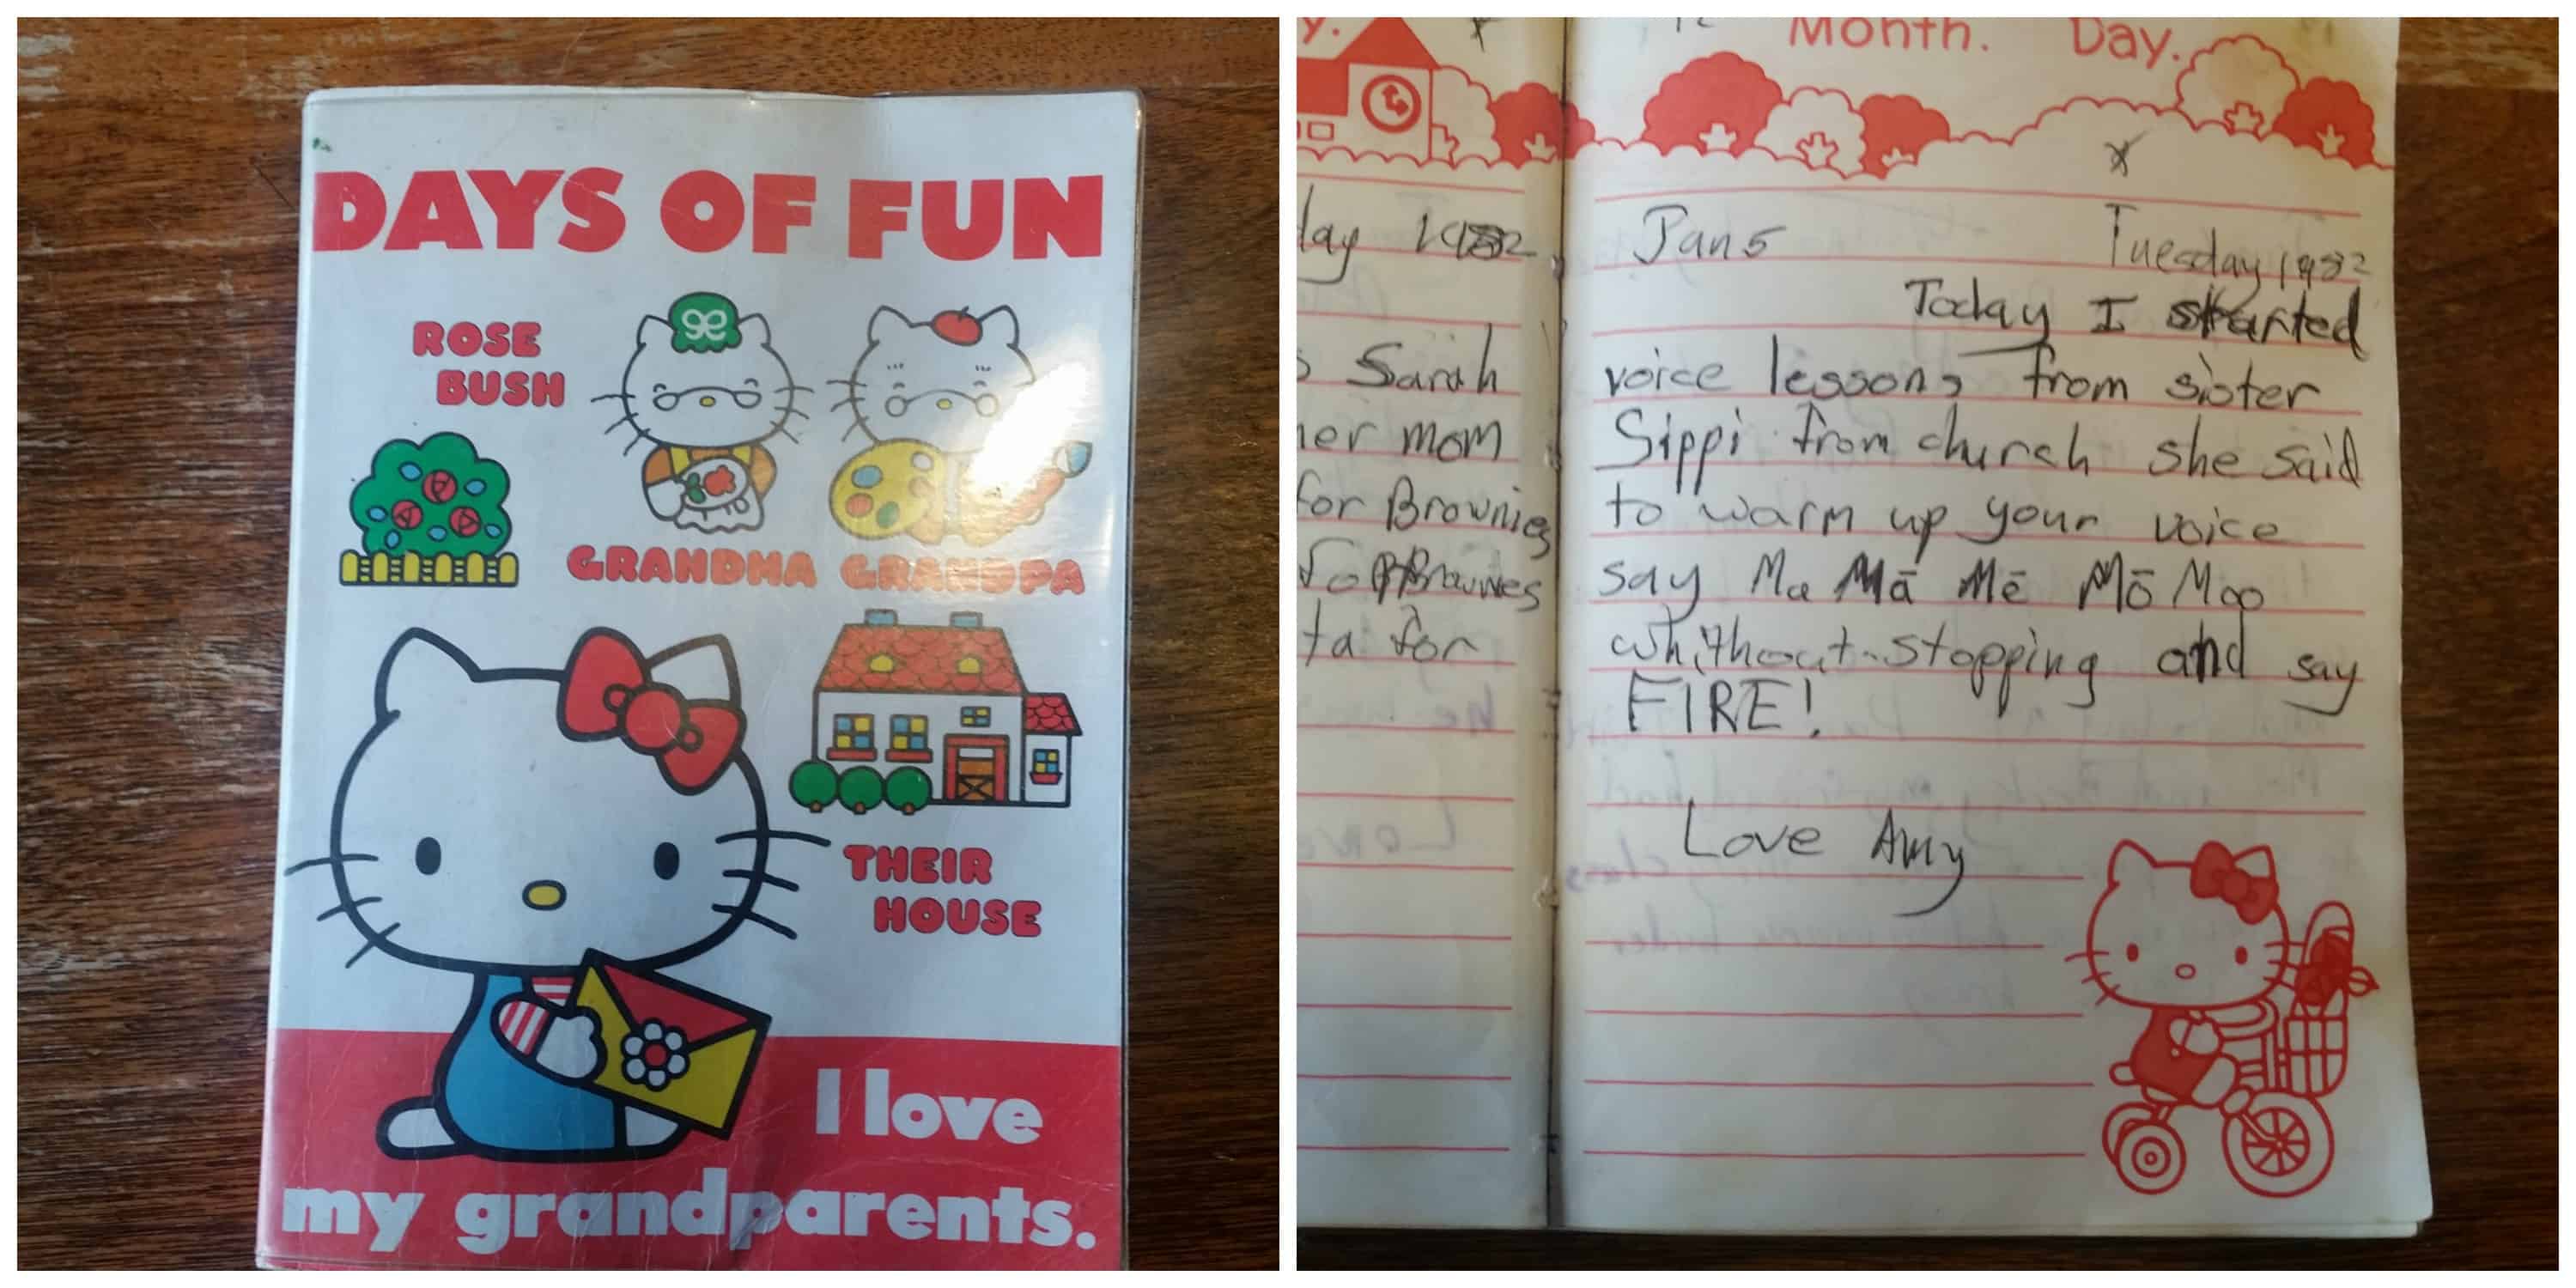 DAYS OF FUN
ROSE
BUSH
GRANDMA GRANDPA
THEIR
HOUSE
I love
my grandparents.
y.
lay 1982
Sarah
her mom
for Brownies
Brownies
ta for
Month. Day.
Jan 5 Tuesday 1982
Today I started
voice lessons from sister
Sippi from church she said
to warm up your voice
say Ma Mā Mē Mō Moo
whithout stopping and say
FIRE!
Love Amy